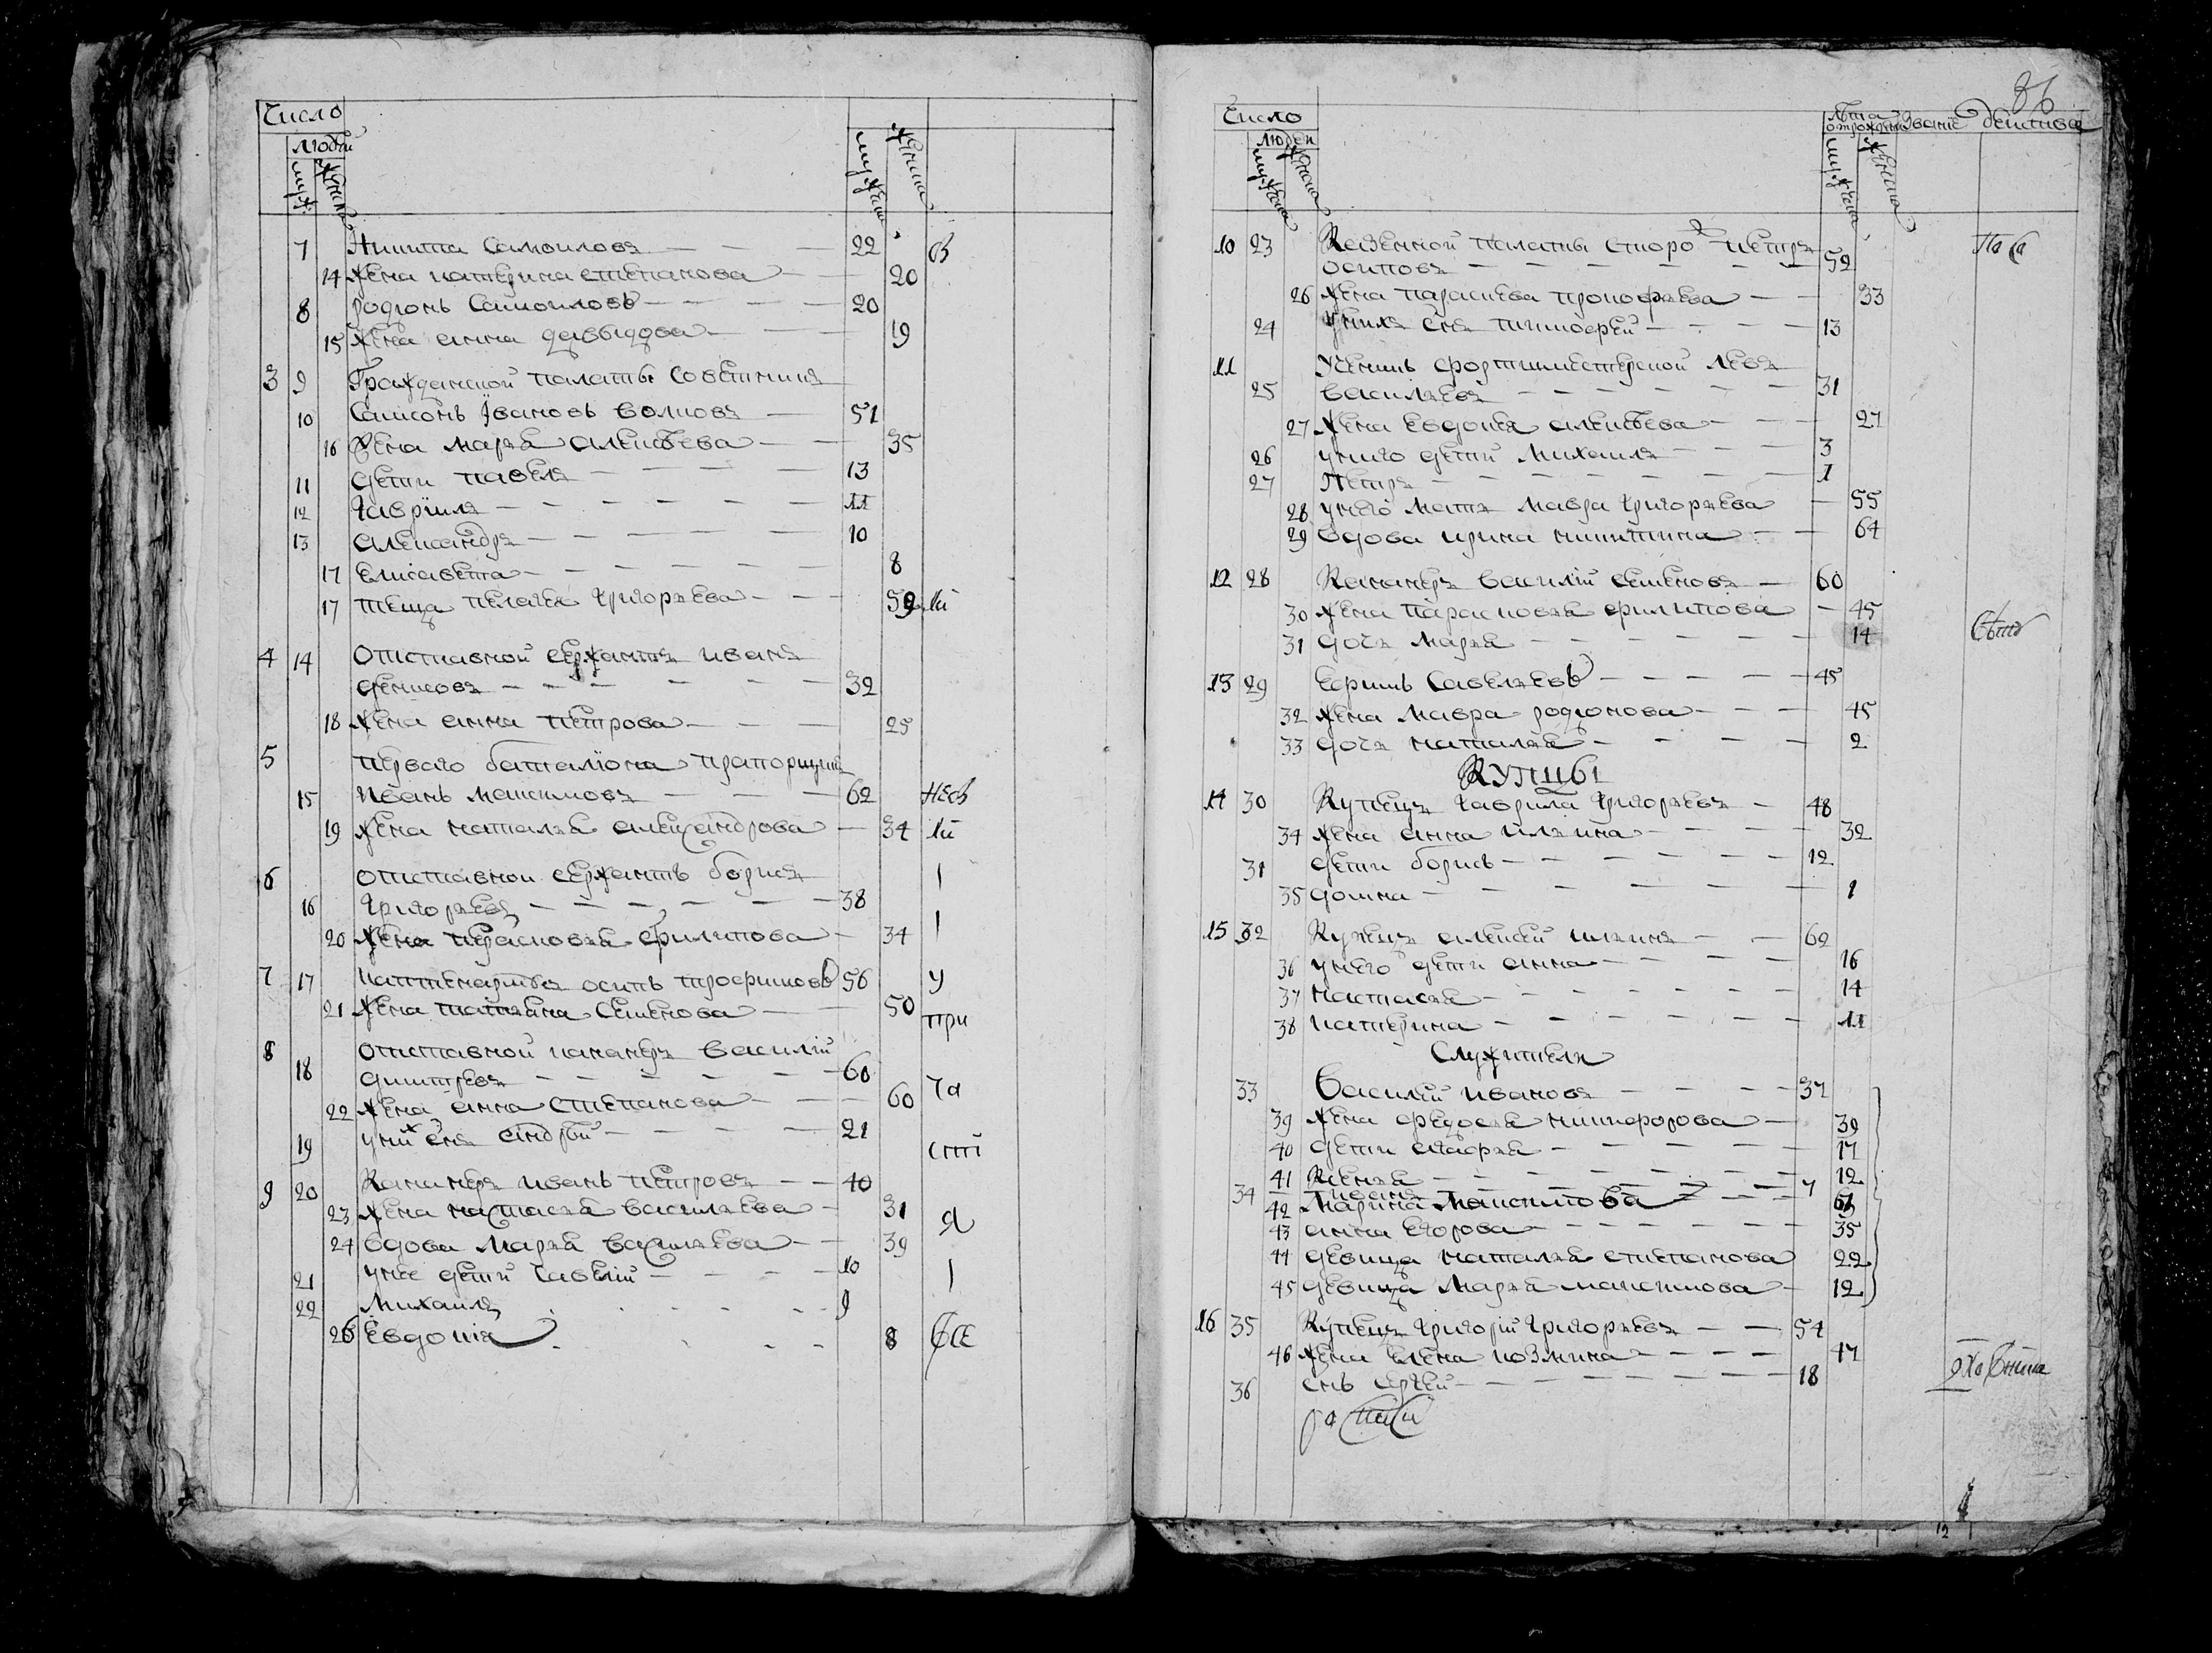 Число
людей
муж:
женска
мужеска
женска
7 Никита Самоиловъ 22 в
14 жена катерина степанова 20
8 родионъ Самоиловъ 20
15 жена анна давыдова 19
3 9 Гражданской палаты Советникъ
10 Самсонъ Ївановъ волковъ 51
16 Жена марья алексѣева 35
11 дети павелъ 13
12 Гаврїилъ 11
13 александръ 10
17 Елисавета 8
17 теща пелагея Григорьева 59 ки
4 14 Отставной сержантъ иванъ
денисовъ 32
18 жена анна петрова 25
5 перваго баталїона прапорщикъ
15 Иванъ максимовъ 62 Исѣ
19 жена наталья александрова 34 ки
6 отставнои сержантъ борисъ
16 Григорьевъ 38
20 жена парасковья филипова 34
7 17 каптенармусъ осипъ трофимовъ 56 у
21 жена татьяна Семенова 50 при
8 отставной кананеръ василїй
18 димитревъ 60
22 жена анна степанова 60 ча
19 у них снъ андрей 21 стї
9 20 Кананеръ иванъ петровъ 40
23 жена настасья васильева 31 я
24 вдова Марья васильева 39
21 у нее дети Савелїй 10
22 Михаилъ 9
26 Евдокїя 8 все
86
Число
людей
мужеска
женска
лѣта отрожденїя
Званїе
Действа
мужеска
женска
10 23 Казенной палаты сторо ж петръ
осиповъ 52
26 жена парасковья прокофьева 33
24 у них снъ тимофей 13
11 Ученикъ фортшместерской левъ
25 васильевъ 31
27 жена Евдокия алексѣева 27
26 у ниго дети Михаилъ 3
27 Петръ 1
28 у него мать мавра Григорьева 55
29 вдова ирина никитина 64
12 28 Кананеръ василїй семеновъ 60
30 жена парасковья филипова 45
31 дочь марья 14
13 29 Ефимъ Савельевъ 45
32 жена мавра родионова 45
33 дочь наталья 2
Купцы
14 30 Купецъ Гаврила Григорьевъ 48
34 жена анна ильина 32
31 дети борисъ 12
35 домна 1
15 32 Купецъ алексей ильинъ 62
36 у него дети анна 16
37 настасья 14
38 катерина 11
Служители
33 Василїй ивановъ 37
39 жена федосья никифорова 39
40 дети агафья 17
41 Ксенья 12
34 иванъ 7
42 Марина Максимова 61
43 анна Егорова 35
44 девица наталья степанова 22
45 девица Марья максимова 12
16 35 Купецъ Григорїй Григорьевъ 54
46 жена Елена козмина 47
36 снъ сергей 18
12